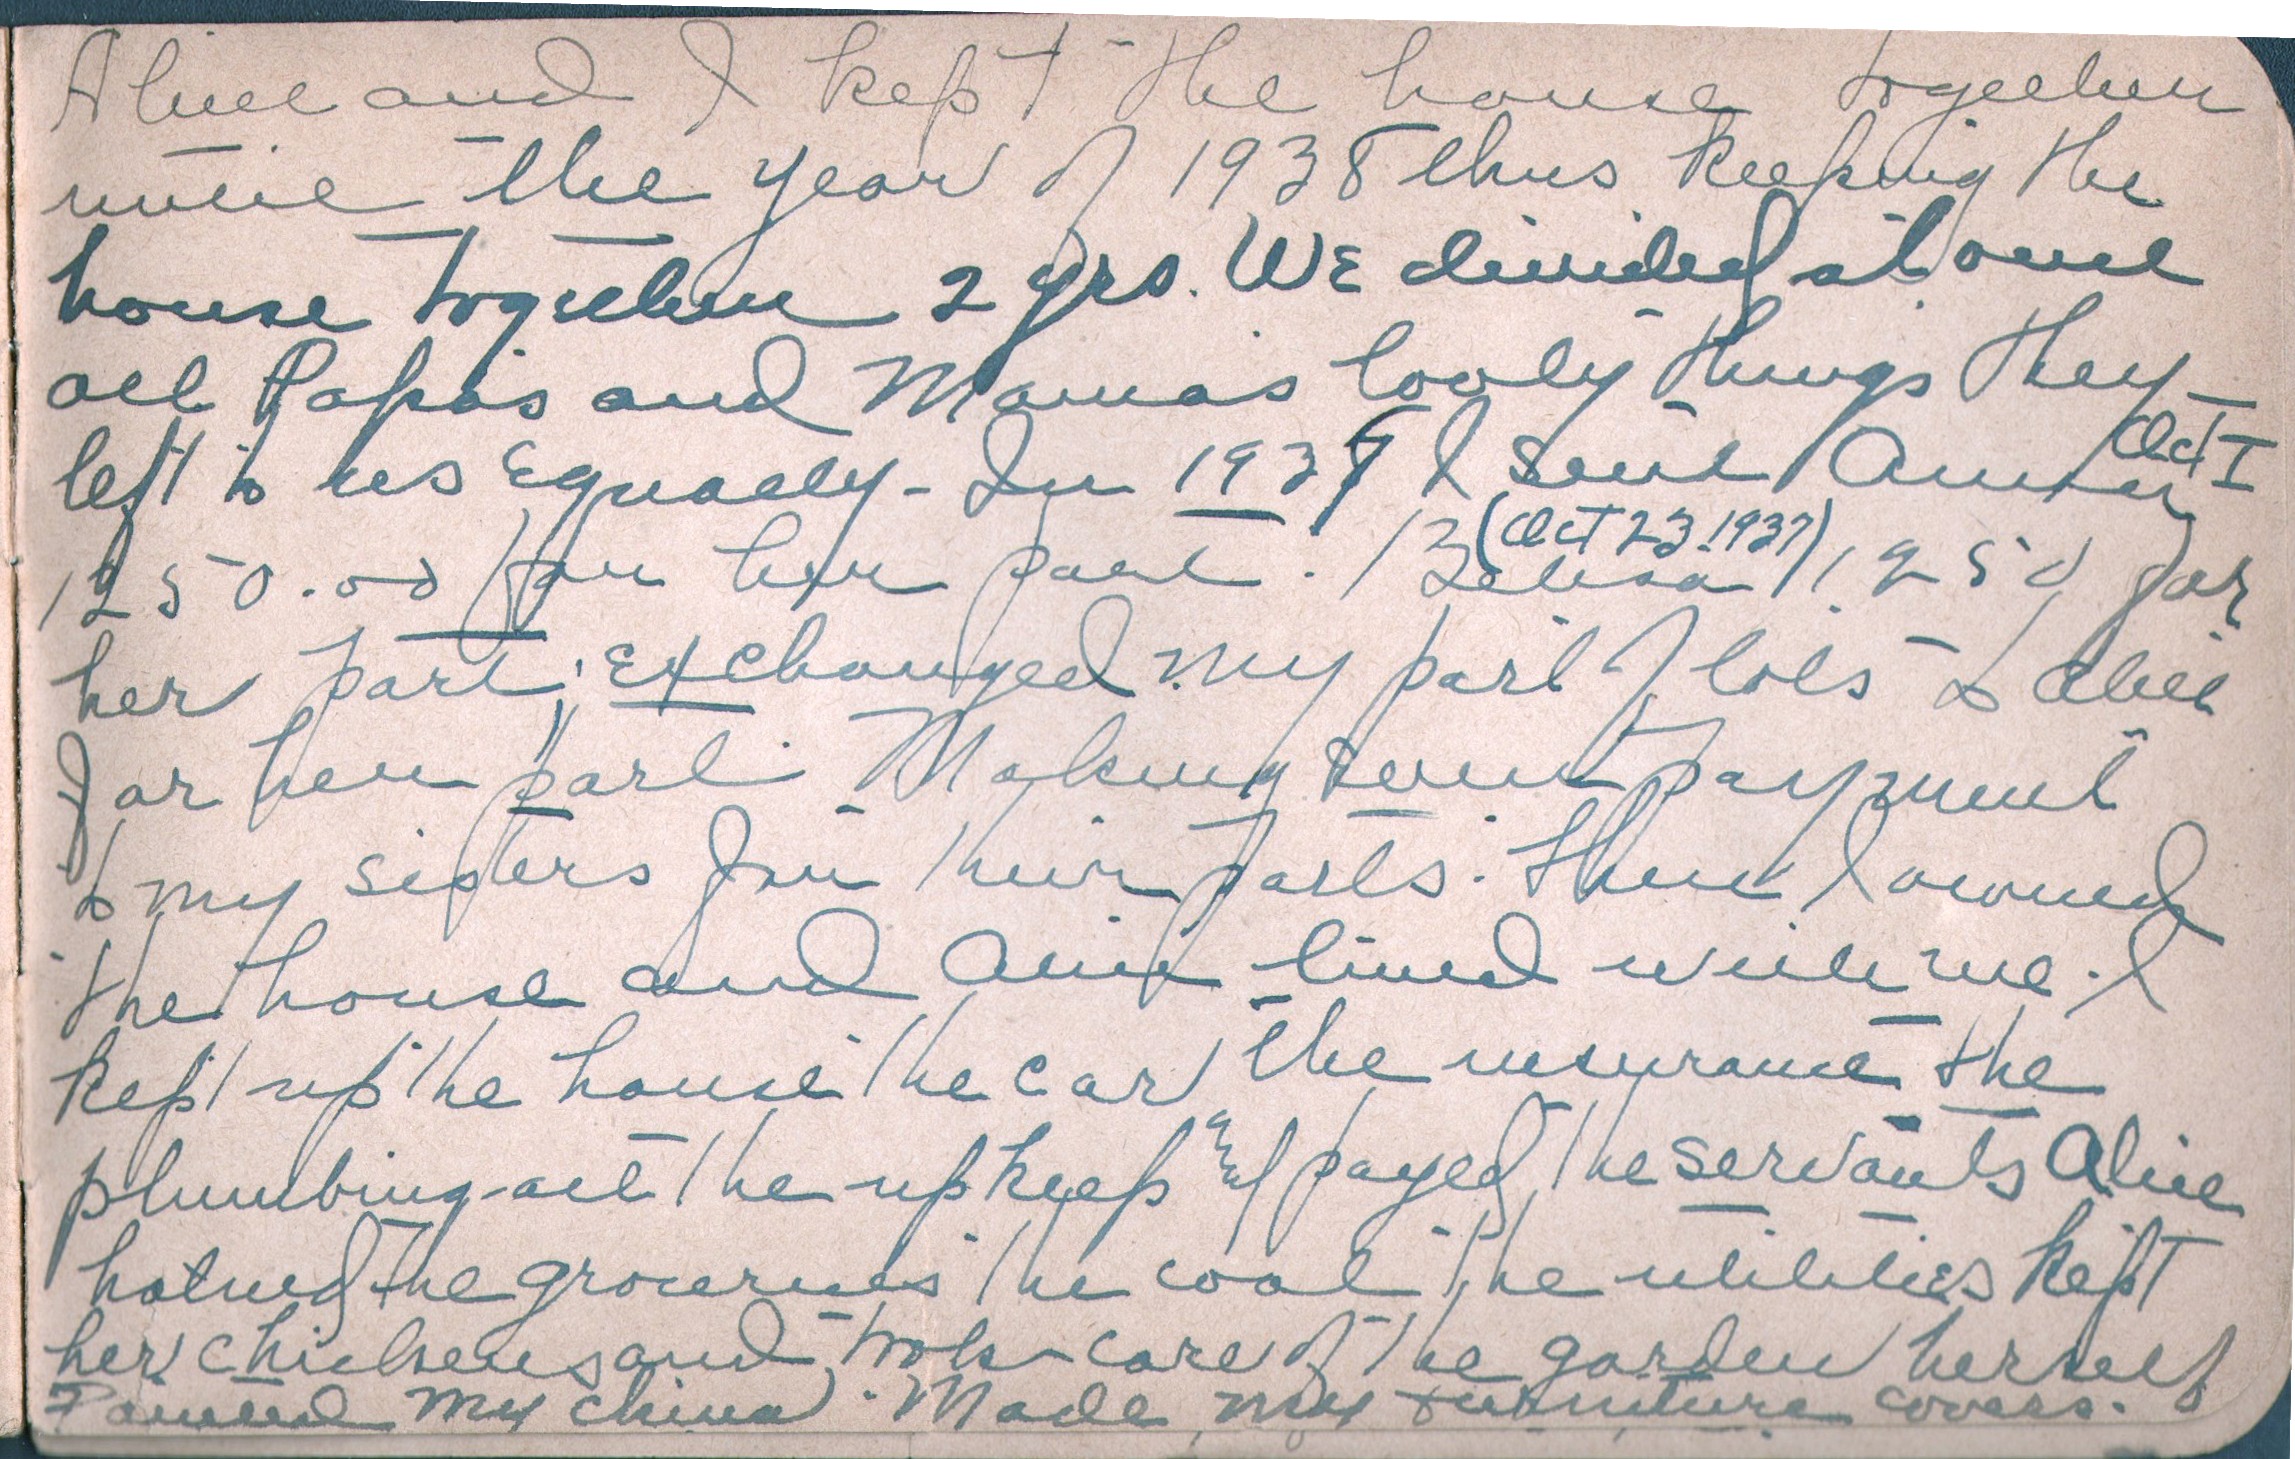 Alice and I kept the house together
until the year of 1938 thus keeping the
house together 2 yrs. We divided at once
all Papas and Mamas lovly things they
left to us Equally - In 1937 I sent Oct 1
1250.00 for her part. (Oct 23. 1937) 1250 for
her part; exchanged my part of lots to Alice
for her part. Making payment
to my sisters for their parts. Then I owned
the house and Alice lived with me. I
kept up the house the car the insurance the
plumbing - all the upkeep and payed the servants Alice
the groceries the coal the utilities kept
her chickens and took care of the garden herself
Painted my china. Made my furniture covers.